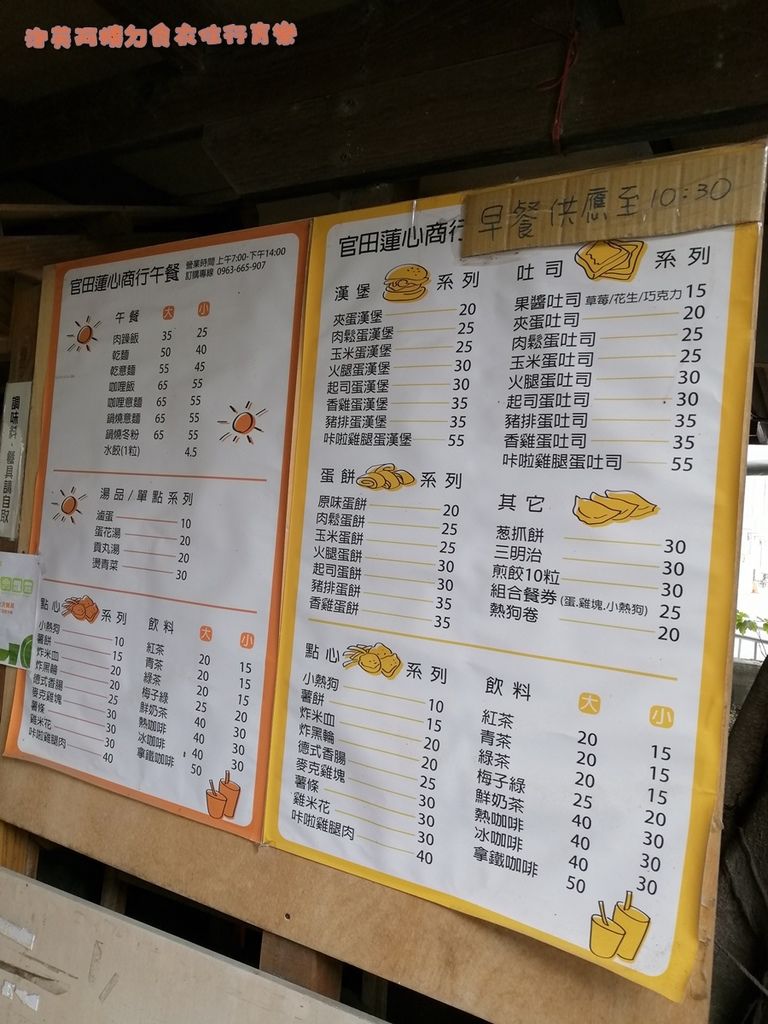 早餐供應至10:30
官田蓮心商行午餐
營業時間 上午7:00-下午14:00
訂購專線 0963-665-907
午餐 大 小
肉躁飯 35 25
乾麵 50 40
乾意麵 55 45
咖哩飯 65 55
咖哩意麵 65 55
鍋燒意麵 65 55
鍋燒冬粉 65 55
水餃(1粒) 4.5
湯品/單點系列
滷蛋 10
蛋花湯 20
貢丸湯 20
燙青菜 30
點心系列
小熱狗 10
薯餅 15
炸米血 20
炸黑輪 20
德式香腸 20
麥克雞塊 25
薯條 30
雞米花 30
咔啦雞腿肉 40
飲料 大 小
紅茶 20 15
青茶 20 15
綠茶 20 15
梅子綠 25 20
鮮奶茶 40 30
熱咖啡 40 30
冰咖啡 40 30
拿鐵咖啡 50 30
官田蓮心商行
漢堡系列
夾蛋漢堡 20
肉鬆蛋漢堡 25
玉米蛋漢堡 25
火腿蛋漢堡 30
起司蛋漢堡 30
香雞蛋漢堡 35
豬排蛋漢堡 35
咔啦雞腿蛋漢堡 55
吐司系列
果醬吐司 草莓/花生/巧克力 15
夾蛋吐司 20
肉鬆蛋吐司 25
玉米蛋吐司 25
火腿蛋吐司 30
起司蛋吐司 30
豬排蛋吐司 35
香雞蛋吐司 35
咔啦雞腿蛋吐司 55
蛋餅系列
原味蛋餅 20
肉鬆蛋餅 25
玉米蛋餅 25
火腿蛋餅 30
起司蛋餅 30
豬排蛋餅 35
香雞蛋餅 35
其它
葱抓餅 30
三明治 30
煎餃10粒 30
組合餐券 (蛋.雞塊.小熱狗) 25
熱狗卷 20
點心系列
小熱狗 10
薯餅 15
炸米血 20
炸黑輪 20
德式香腸 25
麥克雞塊 30
薯條 30
雞米花 30
咔啦雞腿肉 40
飲料 大 小
紅茶 20 15
青茶 20 15
綠茶 20 15
梅子綠 25 20
鮮奶茶 40 30
熱咖啡 40 30
冰咖啡 40 30
拿鐵咖啡 50 30
調味料.餐具請自取